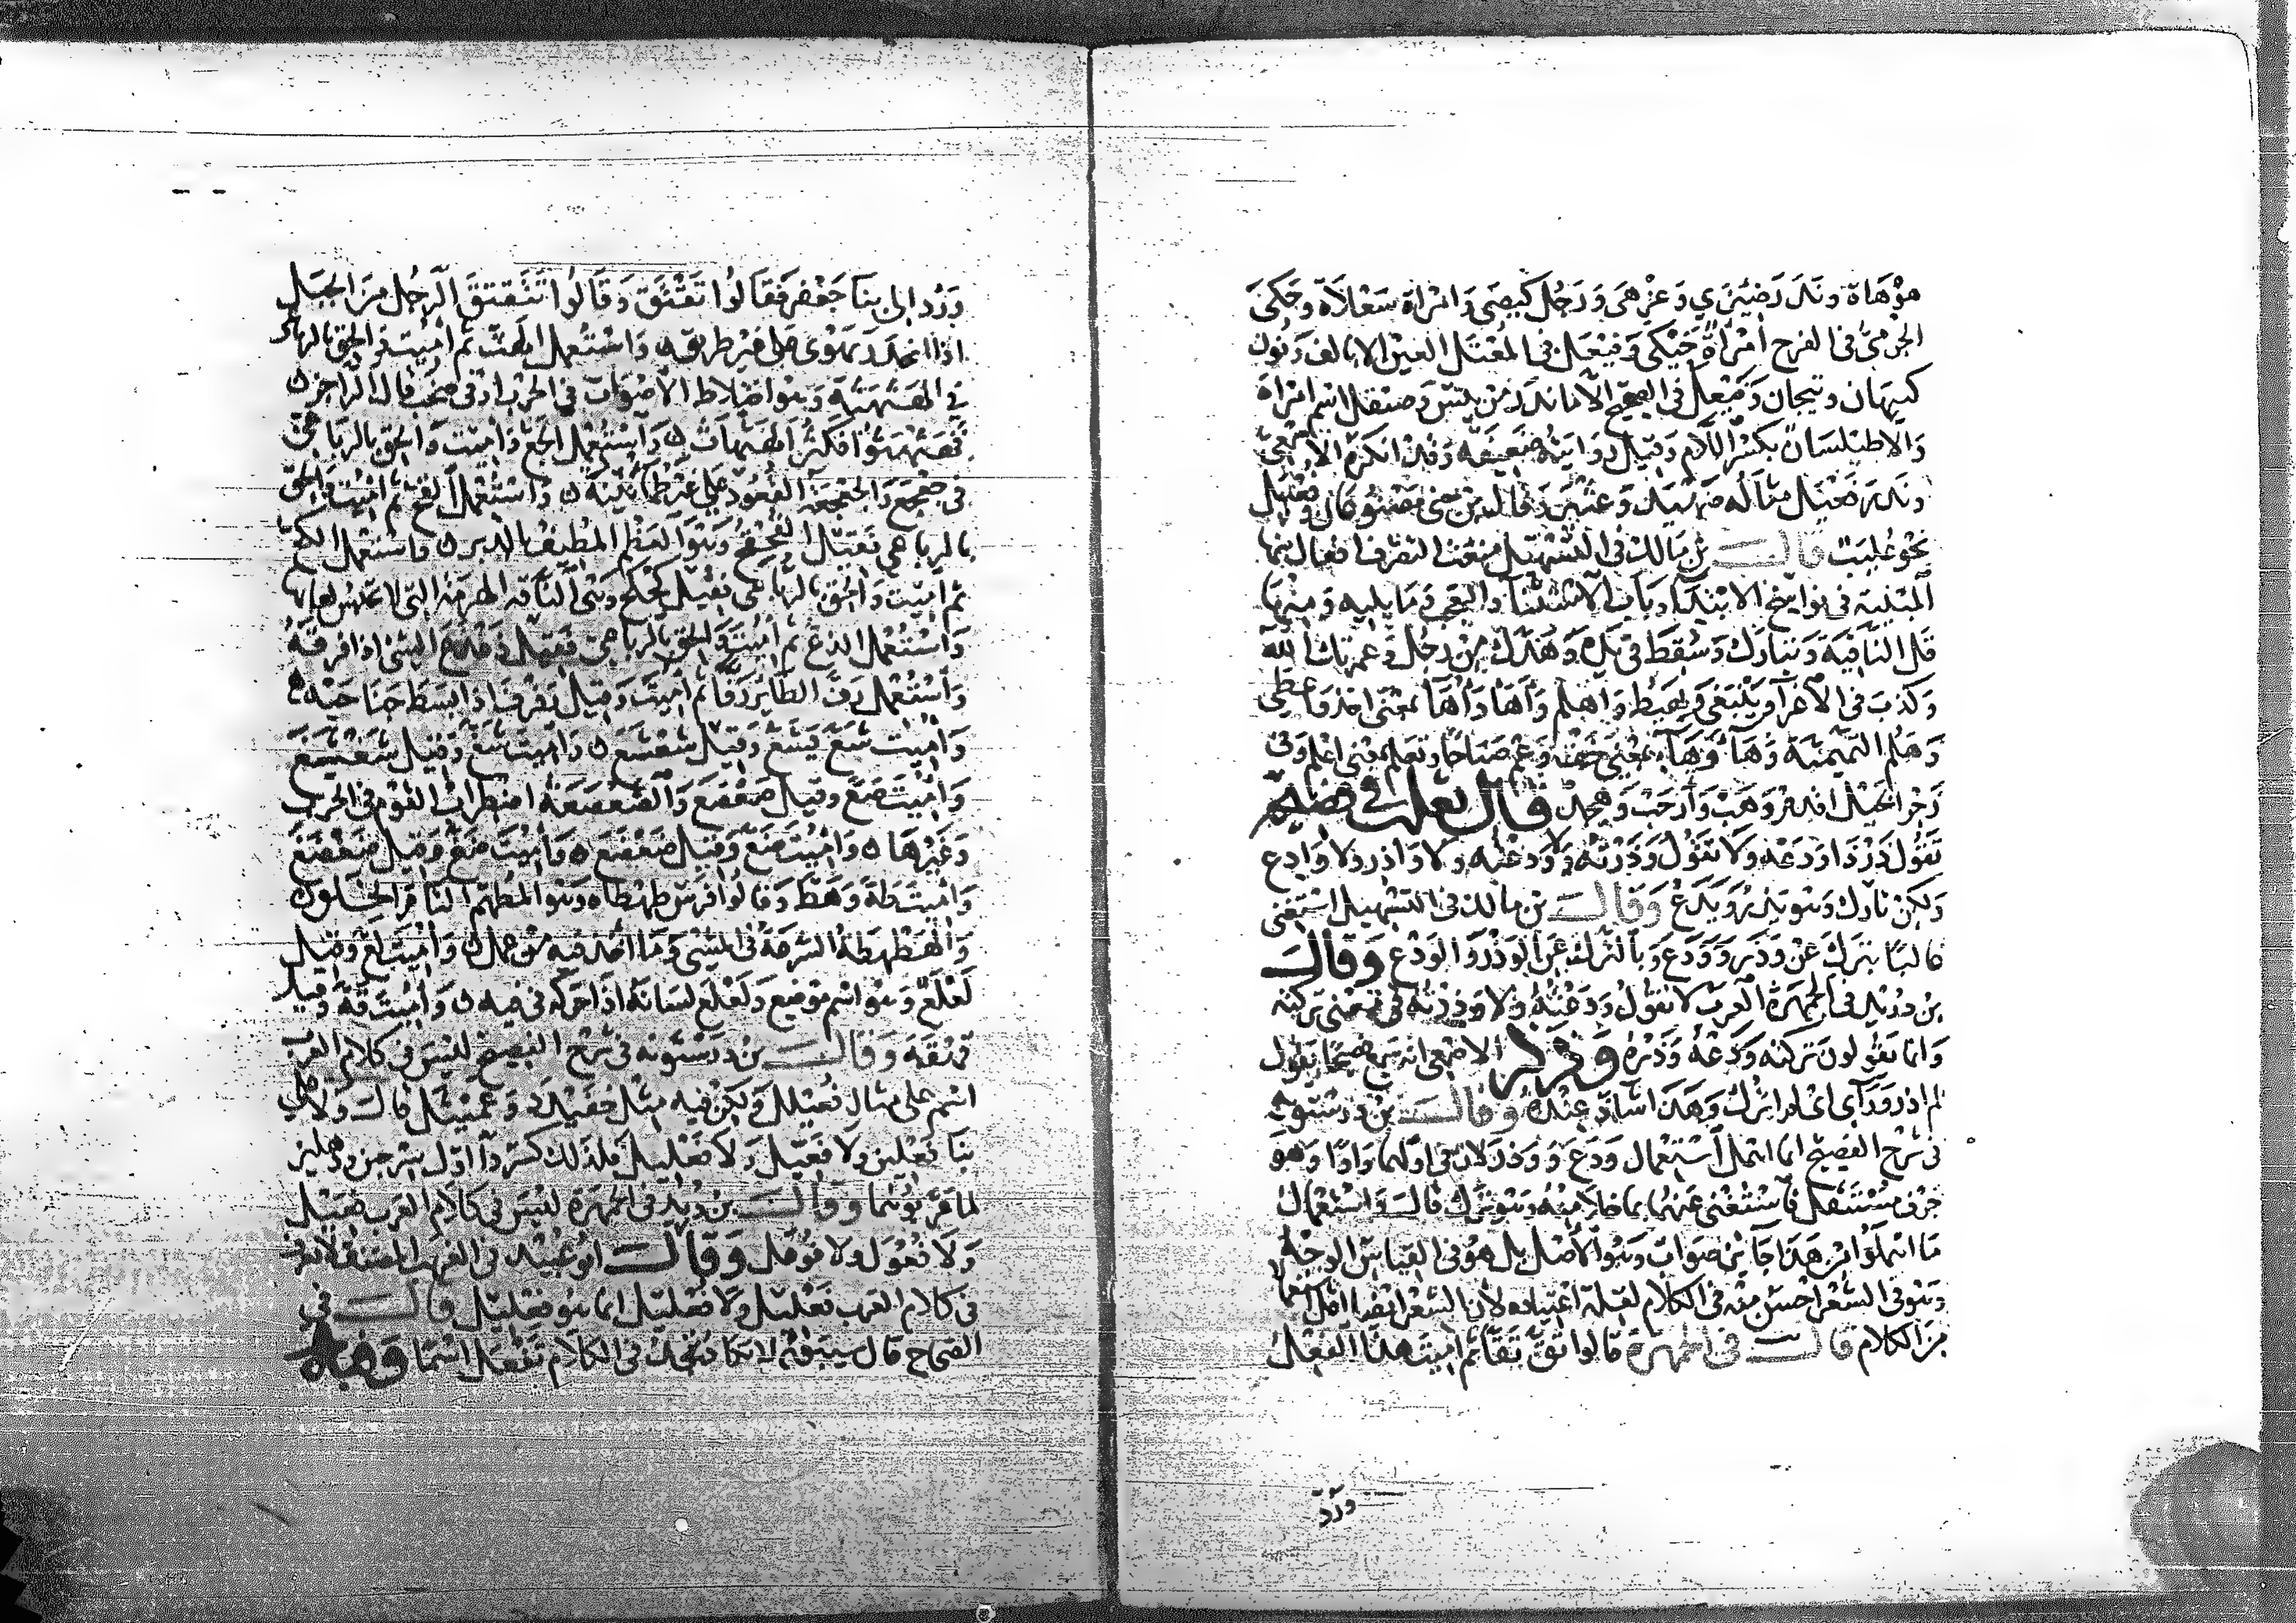 هوهاة وندر ضئزي وعزهى ورجل كيصى وامراة سعلاة وحكى
الجرمي في الفرح امراة حيكى وفيعل في المعتل العين الا بالف ونون
كيهان وتيجان وفيعل في الصحيح الا ما ندر من بيئس وصيقل اسم امراة
والاطيلسان بكسر اللام وقيل روايته ضعيفه وقد انكره الاصمعي
وندر فعيل مثاله ضهيد وعثير وقال بن جني مصنوعان وفعيل
نحو عليب قالــ بن مالك في التسهيل منعت التصرف افعال منها
المثبتة في نواسخ الابتداء وباب الاستثناء والتعجب وما يليه ومنها
قل النافية وتبارك وسقط في يده وهدك من رجل وعمرتك الله
وكذب في الاغراء وينبغي ويهيط واهلم واهأ واهاأ بمعنى اخذ واعطي
وهلم التميمية وهاء وهاء بمعنى خذ وعم صباحا وتعلم بمعنى اعلم وفي
زجر الخيل اقدم وهب وارحب وهجد قال ثعلب في فصيحه
تقول ذر ذا ودعه ولا تقول وذرته ولا ودعته ولا واذر ولا وادع
ولكن تارك وهو يذر ويدع وقالــ بن مالك في التسهيل استغني
غالبا بترك عن وذر وودع وبالترك عن الوذر والودع وقالــ
بن دريد في الجمهرة العرب لا تقول ودعته ولا وذرته في معنى تركته
وانما يقولون تركته ودعه وذره وذكر الاصمعي انه سمع فصيحا يقول
لم اذر وراءي اي لم اترك وهذا شاذ عنده وقالــ بن درستويه
في شرح الفصيح انما اهمل استعمال ودع ووذر لان في اولهما واوا وهو
حرف مستثقل فاستغني عنهما بما خلا منه وهو ترك قالــ واستعمال
ما اهملوا من هذا جائز صواب وهو الاصل بل هو في القياس الوجه
وهو في الشعر احسن منه في الكلام لقلة اعتياده لان الشعر ايضا اقل استعمالا
من الكلام قالــ في الجمهرة قالوا ثق ثقا ثم اميت هذا الفعل
ورد
ورد الى بنا جعفر فقالوا تقثق وقالوا تقتق الرجل من الجبل
اذا انحدر يهوي على غير طريق واستعمل الهث ثم اميت والحق بالرباعي
في الهثهثة وهو اختلاط الاصوات في الحرب او في صخب قال الراجز
فهثهثوا فكثر الهثهاث واستعمل الجع واميت والحق بالرباعي
في جعجع والجعجعة القعود على غير طمانينة واستعمل الفح ثم اميت والحق
بالرباعي فقيل القحقح وهو العظم المطيف بالدبر واستعمل الكح
ثم اميت والحق بالرباعي فقيل كحكح وهي الناقة الهرمة التي لا تحبس لعابها
واستعمل الذع ثم اميت والحق بالرباعي فقيل ذعذع الشيء اذا فرقه
واستعمل رف الطائر رفا ثم اميت وقيل رفرف اذا بسط جناحيه
واميت شع يشع وقيل شعشع واميت شغ وقيل شغشغ
واميت صع وقيل صعصع والصعصعة اضطراب القوم في الحرب
وغيرها واميت ضع وقيل ضعضع واميت ضغ وقيل ضغضغ
واميت طه وهط وقالوا فرس طهطاه وهو المطهم التام الخلق
والهطهطة السرعة في المشي وما اخذ فيه من عمل واميت لع وقيل
لعلع وهو اسم موضع ولعلع لسانه اذا حركه في فيه واميت قه وقيل
قهقه وقالــ بن درستويه في شرح الفصيح ليس في كلام العرب
اسم على مثال فعيلل ولكن فيه مثل خفيدد وعميثل قال ولا على
بنا فعلين ولا فعيل ولا فعليل فلذلك كسروا اول سرجين ودهليز
لما عربوهما وقالــ بن دريد في الجمهرة ليس في كلام العرب فعيل
ولا فعول ولا فوعل وقالــ ابو عبيد في الغريب المصنف لا يعرف
في كلام العرب فعليل ولا فعليل انما هو فعليل قالــ في
الصحاح قال سيبويه لا تكاد تجد في الكلام تفعل اسما وفيه